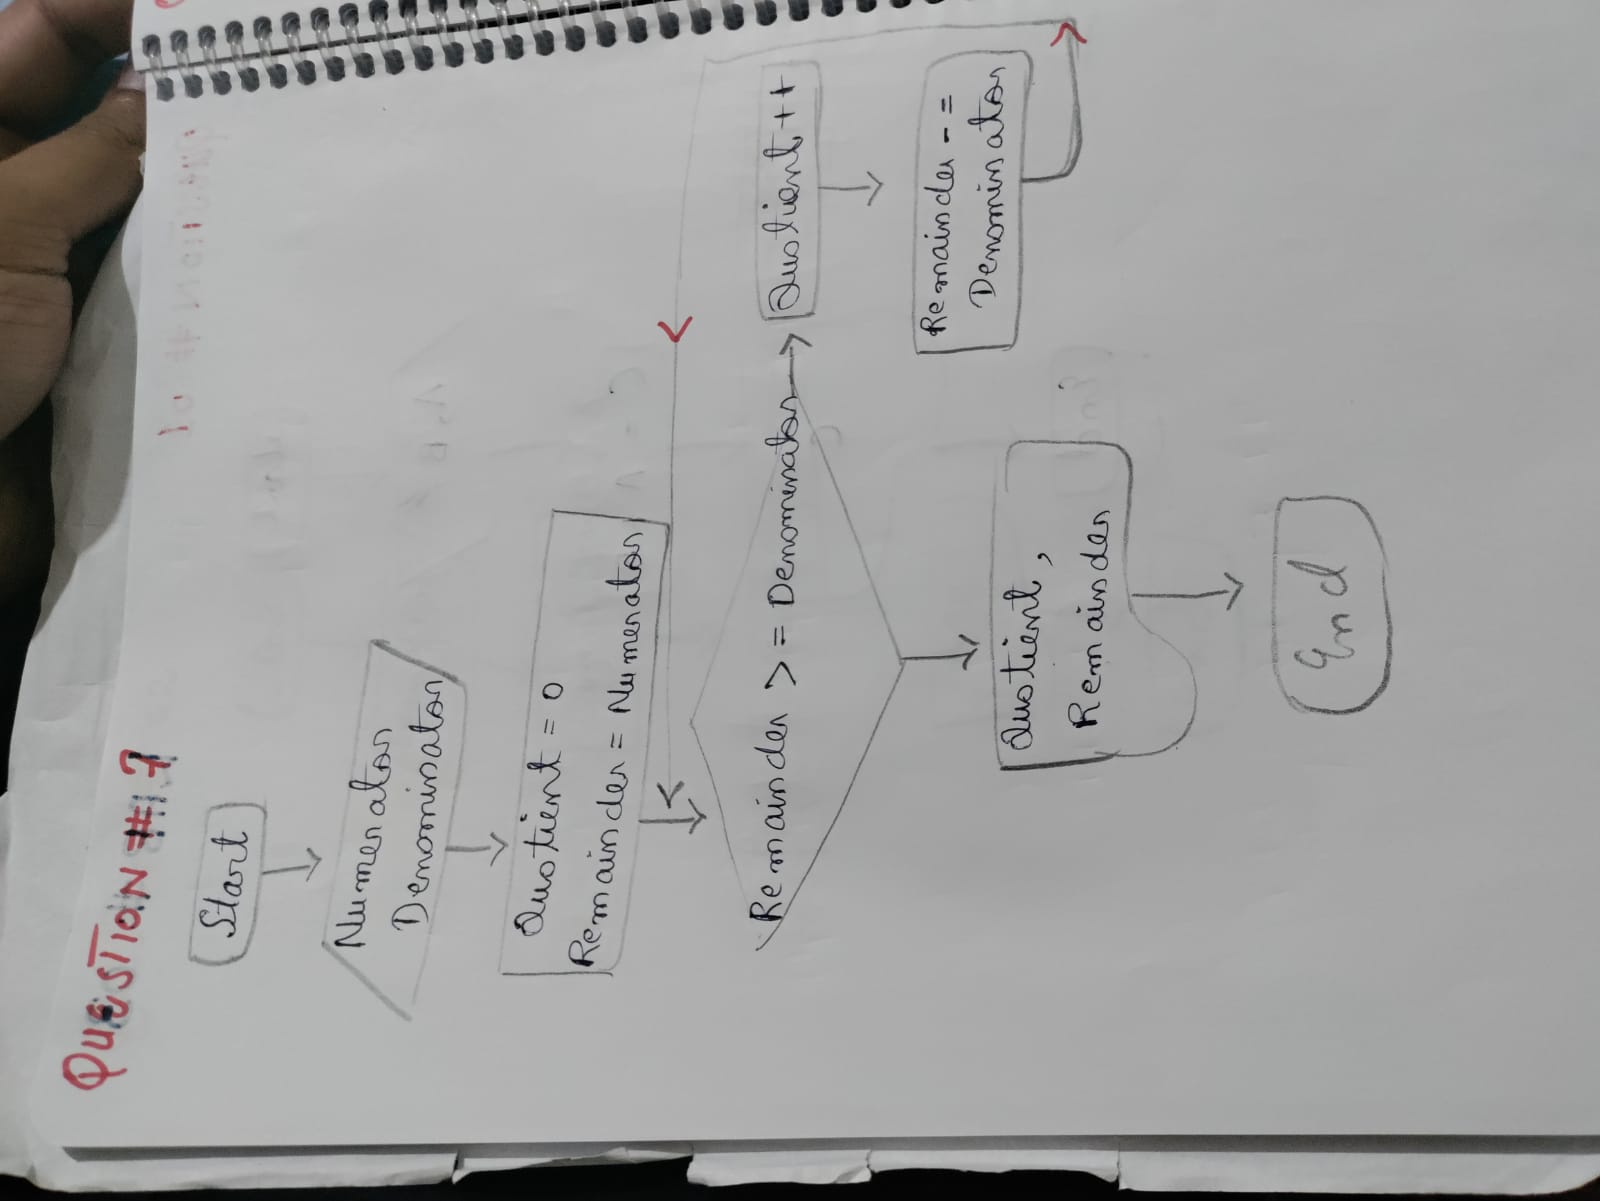 QUESTION #7
Start
Numerator
Denominator
Quotient = 0
Remainder = Numerator
Remainder >= Denominator
Quotient++
Remainder -=
Denominator
Quotient,
Remainder
End